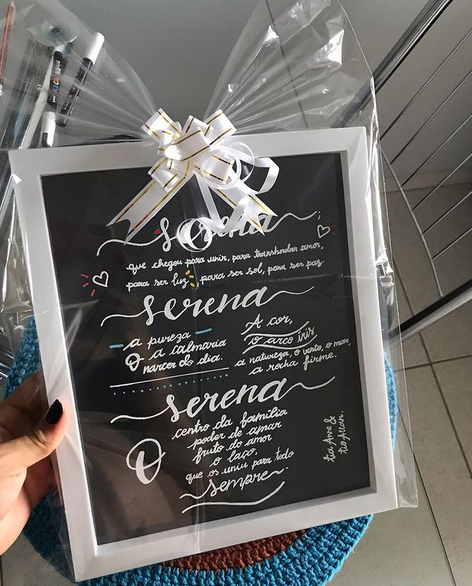 serena
que chegou para unir, para transbordar amor,
para ser luz, para ser sol, para ser paz
serena
a pureza
a calmaria
O nascer do dia.
A cor,
o arco iris
a natureza, o vento, o mar,
a rocha firme.
serena
O centro da família
poder de amar
fruto do amor
o laço,
que os uniu para todo
sempre.
tia Anne &
tio Allan.